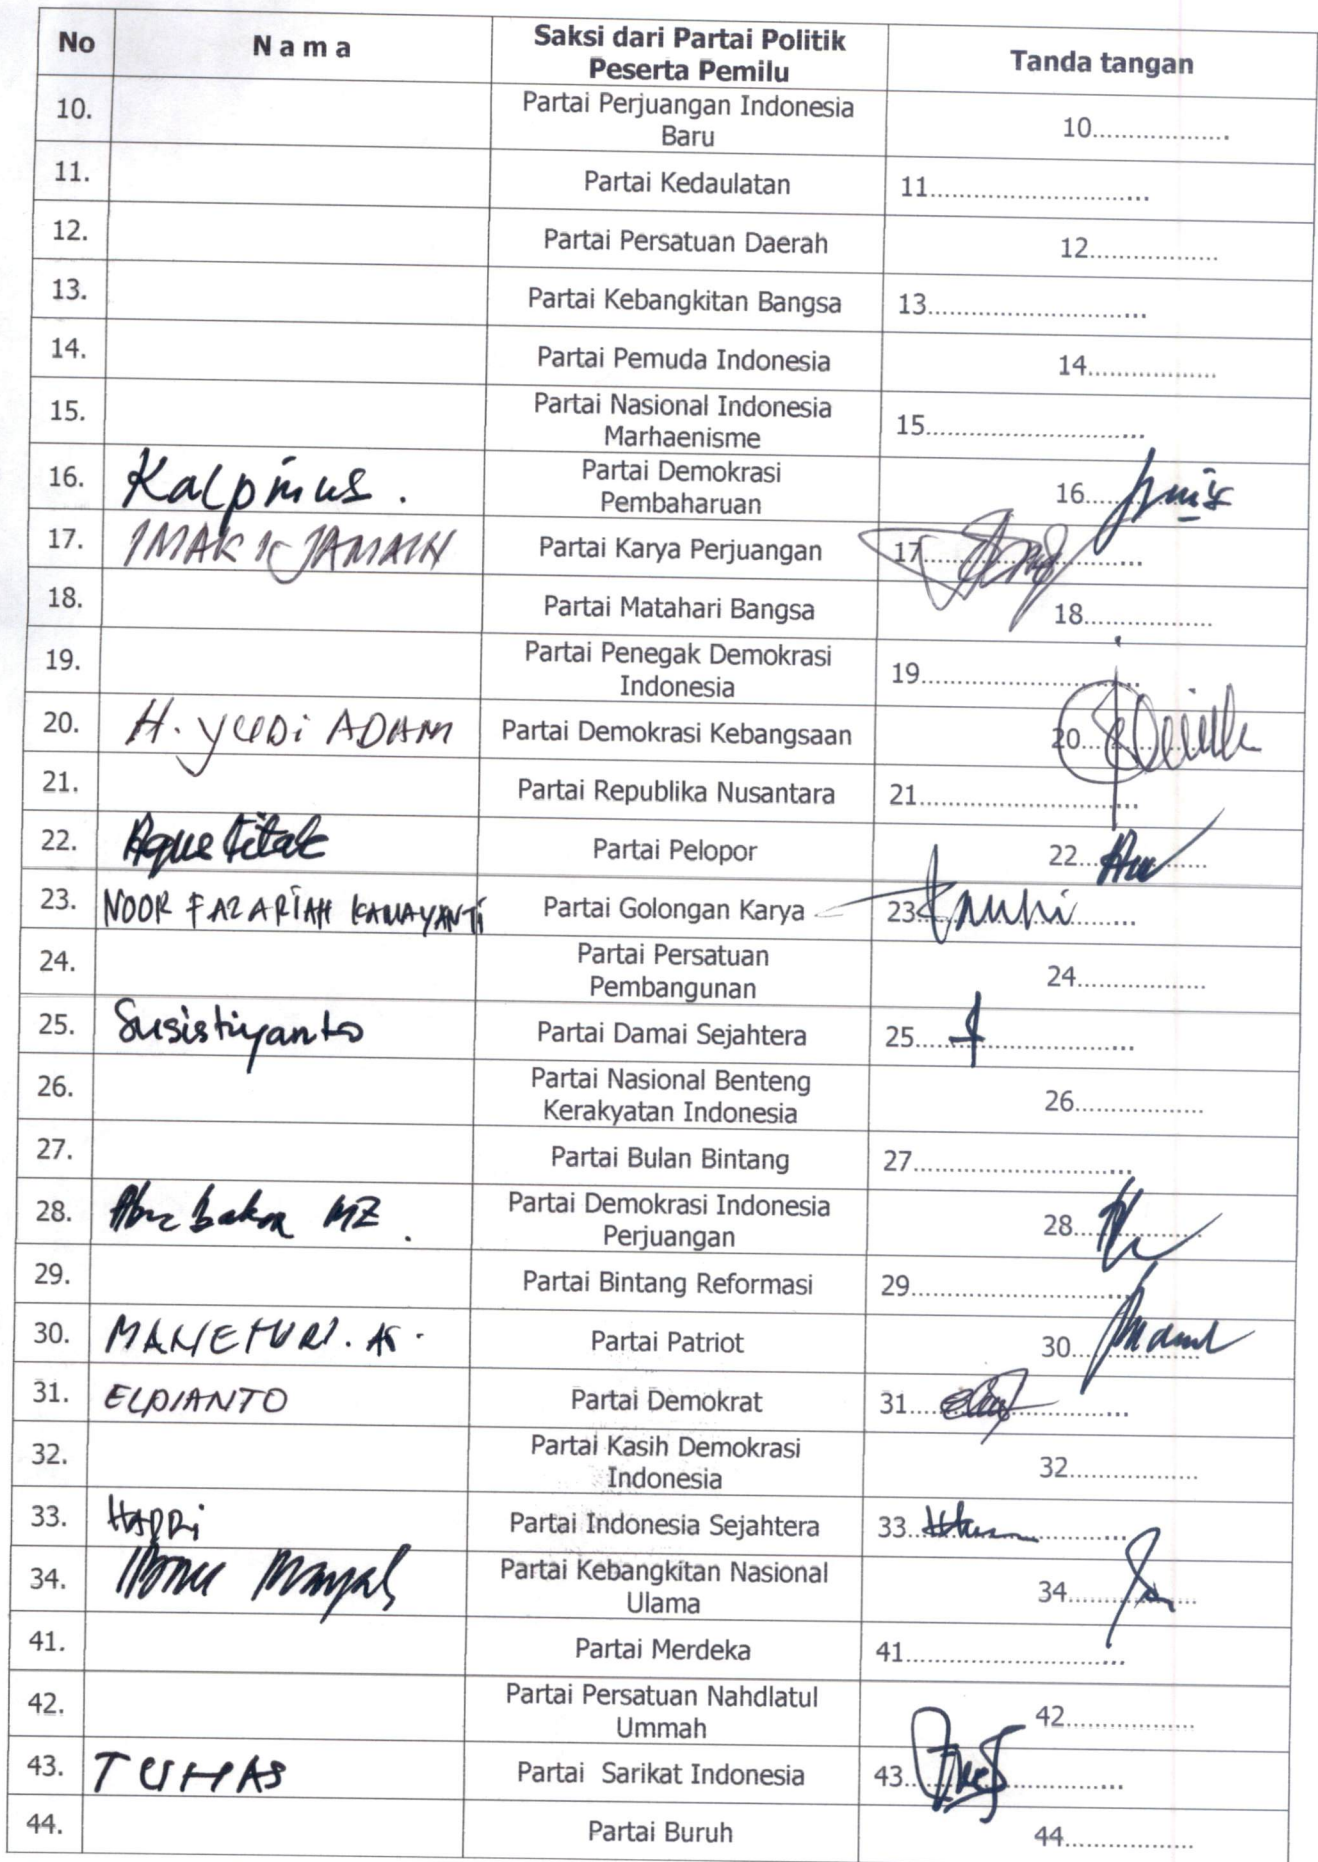 No
Nama
Saksi dari Partai Politik
Peserta Pemilu
Tanda tangan
10.
Partai Perjuangan Indonesia
Baru
10..................
11.
Partai Kedaulatan
11............................
12.
Partai Persatuan Daerah
12.................
13.
Partai Kebangkitan Bangsa
13............................
14.
Partai Pemuda Indonesia
14.................
15.
Partai Nasional Indonesia
Marhaenisme
15............................
16.
Kalpinus.
Partai Demokrasi
Pembaharuan
16.................
17.
IMAK K JAMAIN
Partai Karya Perjuangan
17............................
18.
Partai Matahari Bangsa
18.................
19.
Partai Penegak Demokrasi
Indonesia
19............................
20.
H. YUDi ADAM
Partai Demokrasi Kebangsaan
20.................
21.
Partai Republika Nusantara
21............................
22.
Partai Pelopor
22.................
23.
NOOR FAZARIAH KAMAYANTi
Partai Golongan Karya
23............................
24.
Partai Persatuan
Pembangunan
24.................
25.
Susistiyanto
Partai Damai Sejahtera
25............................
26.
Partai Nasional Benteng
Kerakyatan Indonesia
26.................
27.
Partai Bulan Bintang
27............................
28.
Abu bakar MZ.
Partai Demokrasi Indonesia
Perjuangan
28.................
29.
Partai Bintang Reformasi
29............................
30.
Partai Patriot
30.................
31.
ELDIANTO
Partai Demokrat
31............................
32.
Partai Kasih Demokrasi
Indonesia
32.................
33.
HAPRi
Partai Indonesia Sejahtera
33............................
34.
Partai Kebangkitan Nasional
Ulama
34.................
41.
Partai Merdeka
41............................
42.
Partai Persatuan Nahdlatul
Ummah
42.................
43.
TUHAS
Partai Sarikat Indonesia
43............................
44.
Partai Buruh
44.................